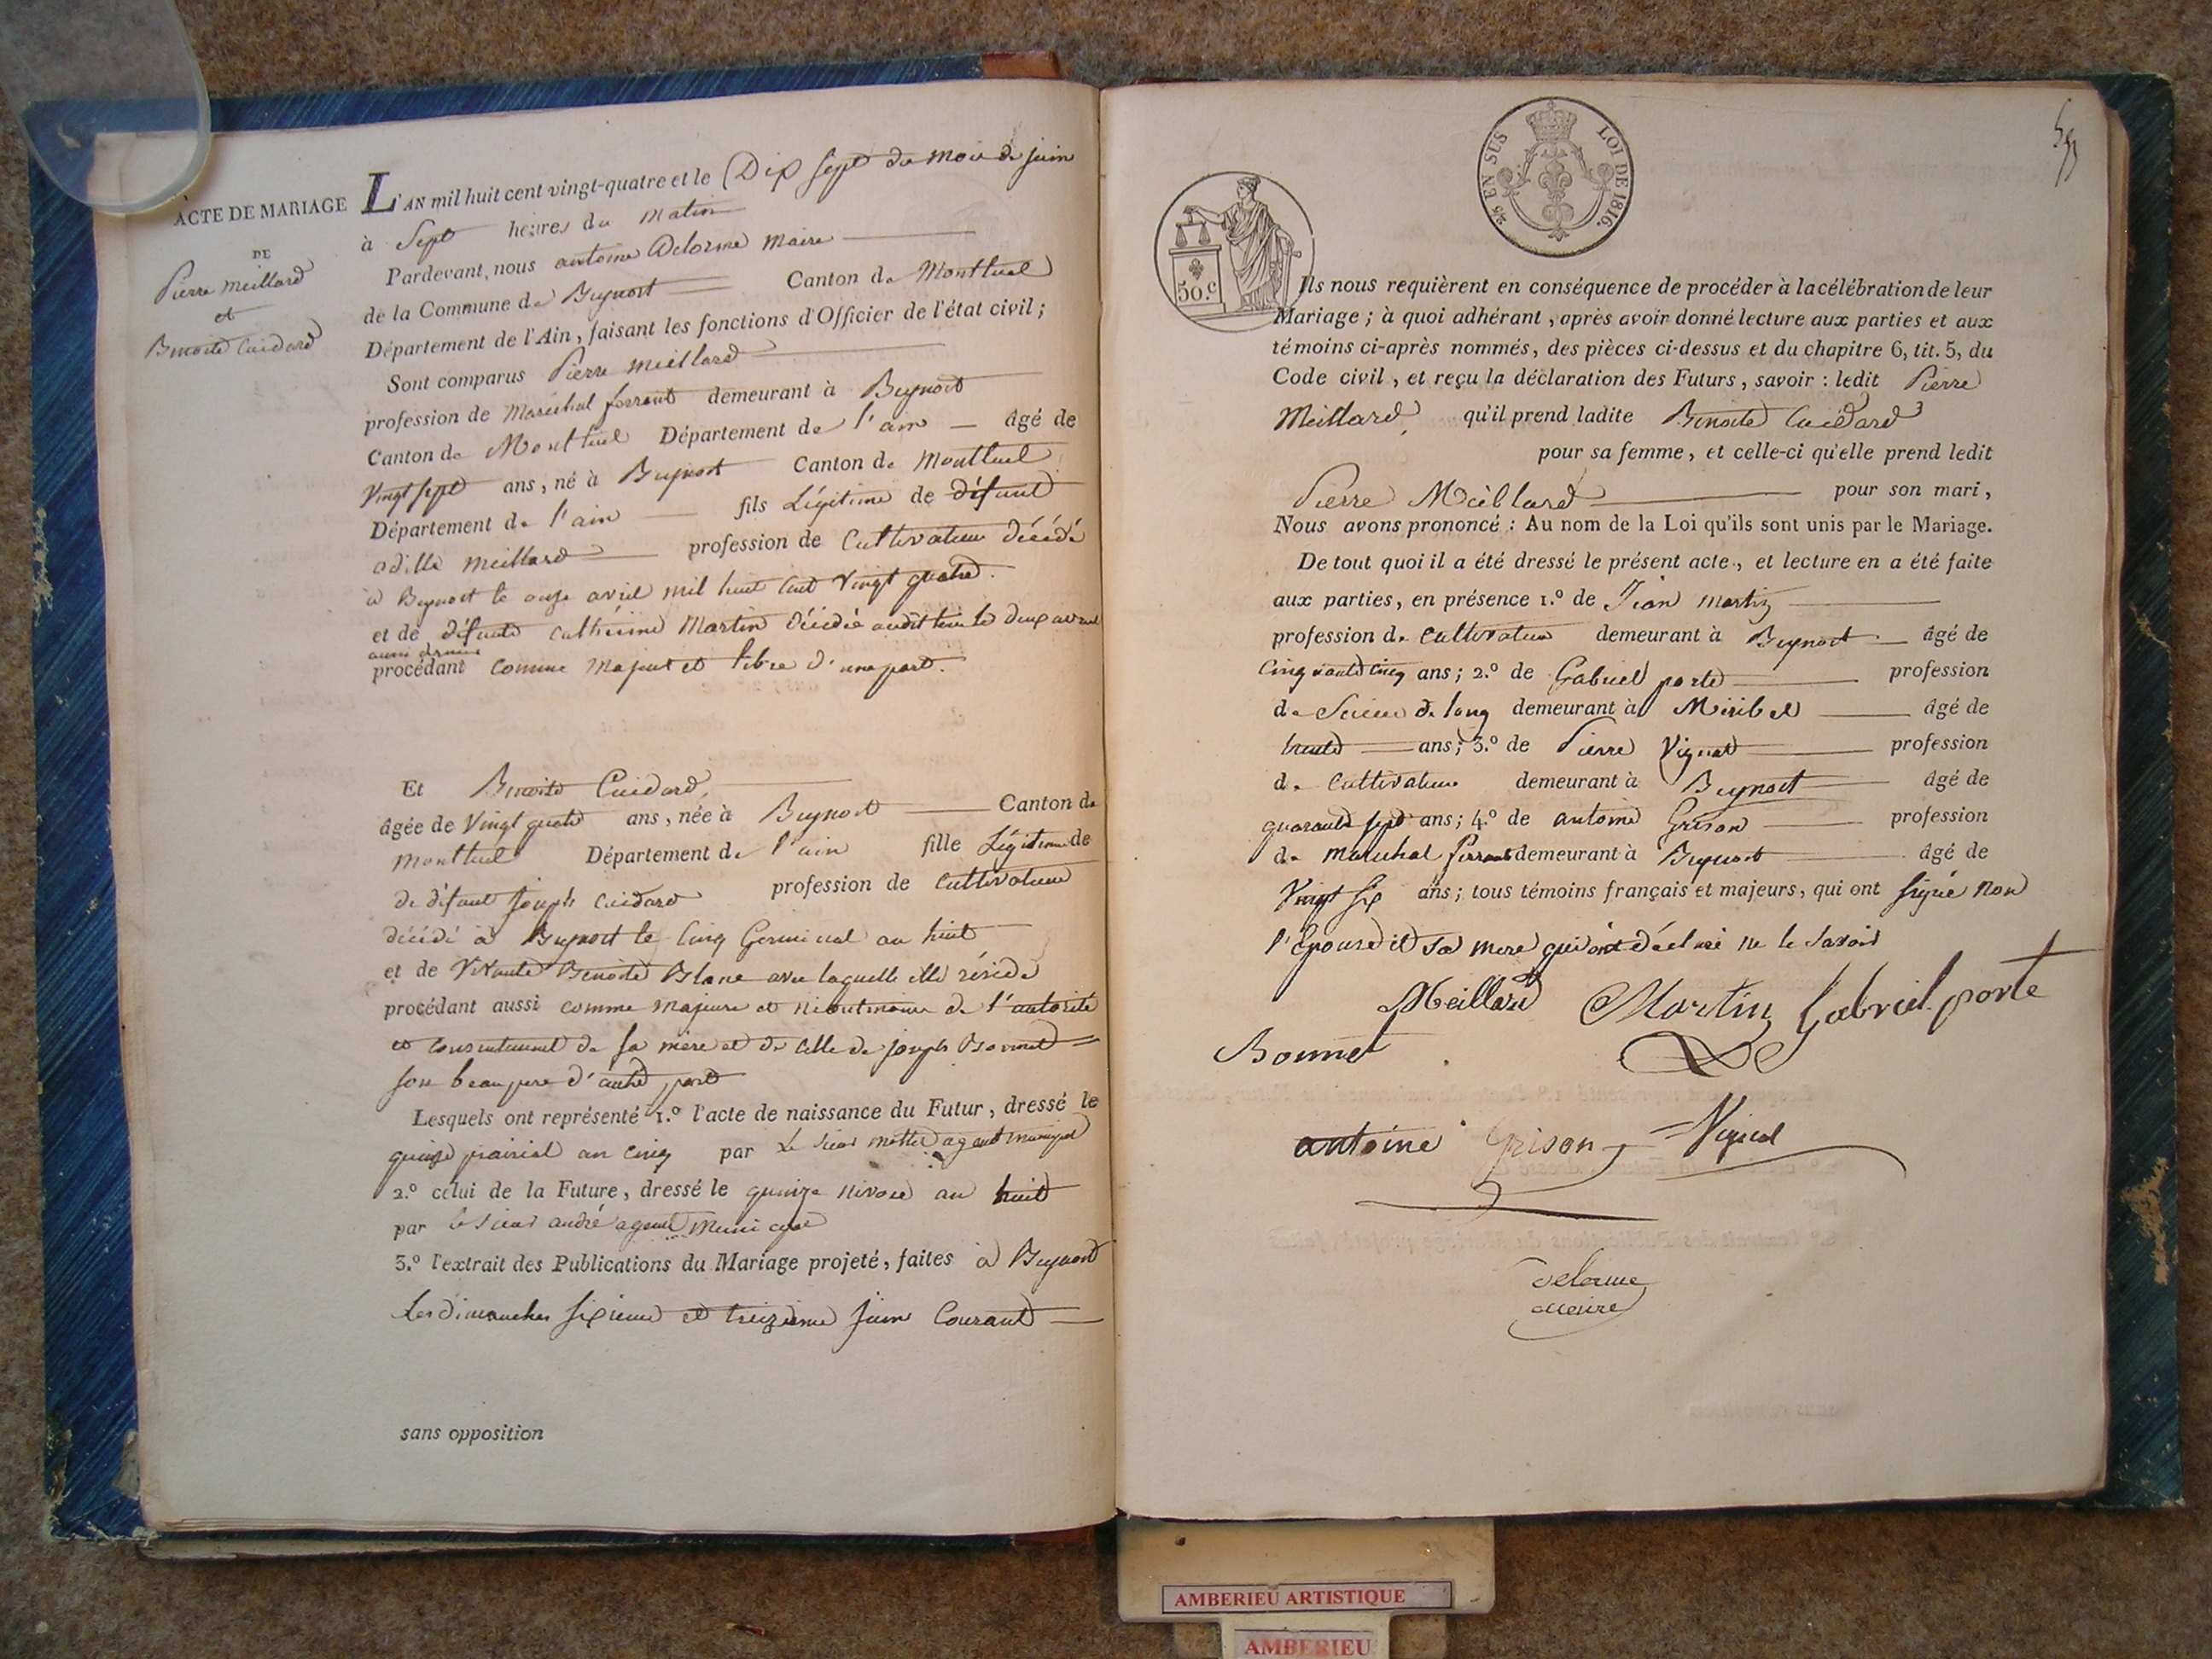 ACTE DE MARIAGE
DE
Pierre Meillard
et
Benoite Cuidard
L'AN mil huit cent vingt-quatre et le Dix sept du mois de juin
à Sept heures du Matin
Pardevant, nous antoine Delorme Maire
de la Commune de Beynost Canton de Montluel
Département de l'Ain, faisant les fonctions d'Officier de l'état civil;
Sont comparus Pierre Meillard
profession de Maréchal ferrant demeurant à Beynost
Canton de Montluel Département de l'ain âgé de
Vingt sept ans, né à Beynost Canton de Montluel
Département de l'ain fils Légitime de défunt
Meillard profession de Cultivateur décédé
à Beynost le onze avril mil huit cent vingt quatre.
et de défunte Cathérine Martin décédée audit lieu le deux avril
aussi dernier
procédant comme Majeur et libre d'une part.
Et Benoite Cuidard,
âgée de Vingt quatre ans, née à Beynost Canton de
Montluel Département de l'ain fille Légitime de
de défunt Joseph Cuidard profession de Cultivateur
décédé à Beynost le cinq Germinal an huit
et de Vivante Benoite Blanc avec laquelle elle réside
procédant aussi comme Majeure et de l'autorité
et consentement de sa mère et de celle de joseph Bonnet
son beau pere d'autre part
Lesquels ont représenté 1.° l'acte de naissance du Futur, dressé le
quinze prairial an cinq par Le sieur agent municipal
2.° celui de la Future, dressé le quinze nivose an huit
par le sieur andré agent Municipal
3.° l'extrait des Publications du Mariage projeté, faites à Beynost
Les dimanches sixieme et treizieme juin Courant
sans opposition
EN SUS LOI DE 1816.
50.c
Ils nous requièrent en conséquence de procéder à la célébration de leur
Mariage; à quoi adhérant, après avoir donné lecture aux parties et aux
témoins ci-après nommés, des pièces ci-dessus et du chapitre 6, tit. 5, du
Code civil, et reçu la déclaration des Futurs, savoir: ledit Pierre
Meillard qu'il prend ladite Benoite Cuidard
pour sa femme, et celle-ci qu'elle prend ledit
Pierre Meillard pour son mari,
Nous avons prononcé: Au nom de la Loi qu'ils sont unis par le Mariage.
De tout quoi il a été dressé le présent acte, et lecture en a été faite
aux parties, en présence 1.° de Jean Martin
profession de Cultivateur demeurant à Beynost âgé de
Cinquante cinq ans; 2.° de Gabriel porte profession
de Scieur de long demeurant à Miribel âgé de
trente ans; 3.° de Pierre Vignat profession
de Cultivateur demeurant à Beynost âgé de
quarante sept ans; 4.° de antoine Grison profession
de maréchal ferrant demeurant à Beynost âgé de
Vingt six ans; tous témoins français et majeurs, qui ont signé non
l'Epouse et sa mere qui ont déclaré ne le savoir
Meillard Martin Gabriel porte
Bonnet
antoine Grison Vignat
Delorme
Maire
AMBERIEU ARTISTIQUE
AMBERIEU